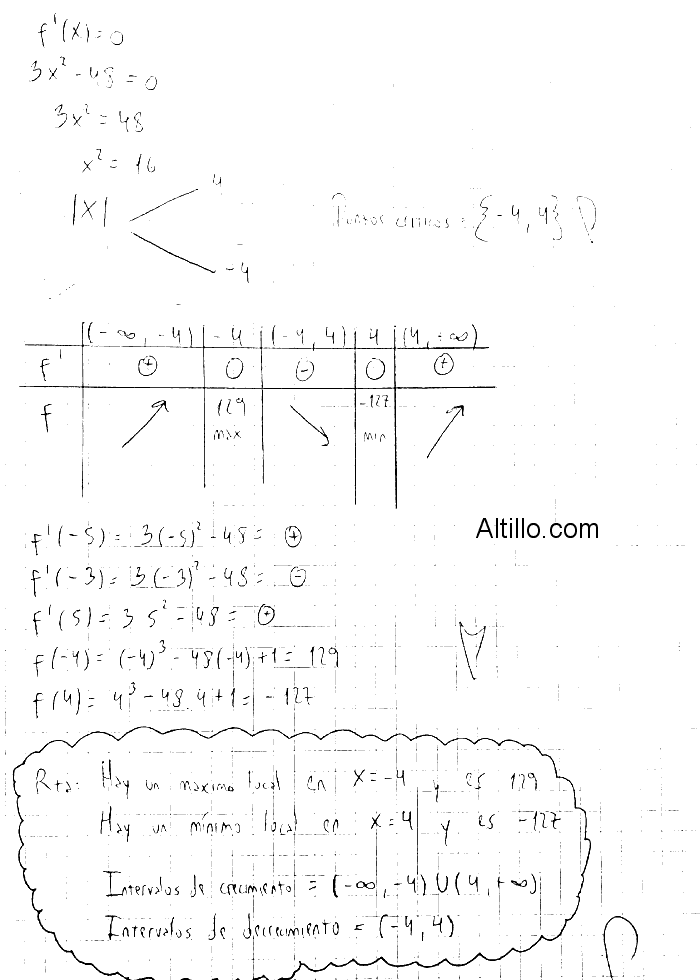 f'(x)=0
3x² - 48 = 0
3x² = 48
x² = 16
|x| 4
-4
Puntos críticos = {-4, 4}
(-∞, -4) -4 (-4, 4) 4 (4, +∞)
f' ⊕ 0 ⊖ 0 ⊕
f 129 -127
max min
f'(-5) = 3(-5)² - 48 = ⊕
Altillo.com
f'(-3) = 3(-3)² - 48 = ⊖
f'(5) = 3 5² - 48 = ⊕
f(-4) = (-4)³ - 48(-4) + 1 = 129
f(4) = 4³ - 48.4 + 1 = -127
Rta: Hay un maximo local en x = -4 y es 129
Hay un mínimo local en x = 4 y es -127
Intervalos de crecimiento = (-∞, -4) U (4, +∞)
Intervalos de decrecimiento = (-4, 4)